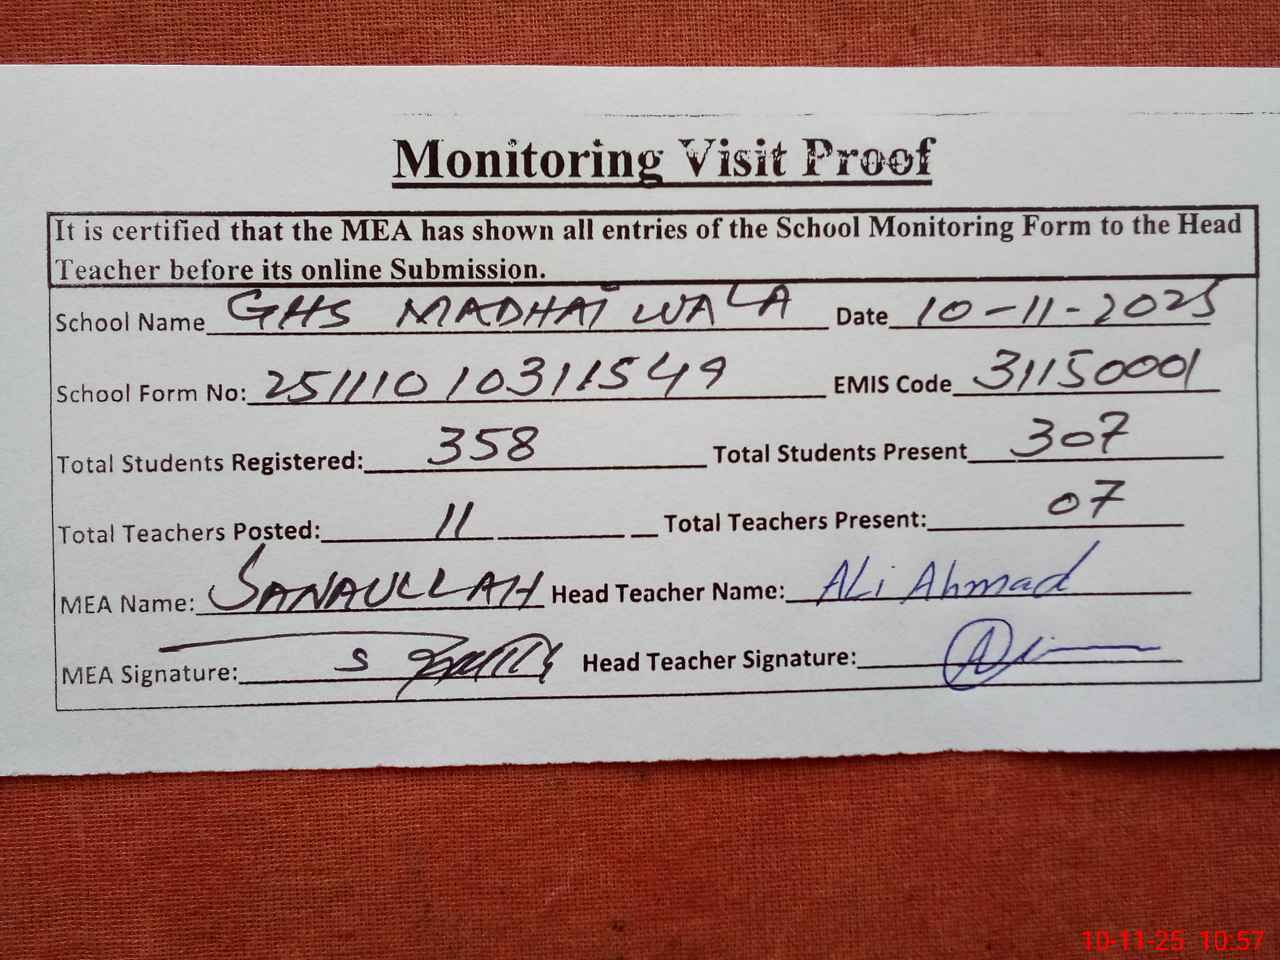 Monitoring Visit Proof
It is certified that the MEA has shown all entries of the School Monitoring Form to the Head
Teacher before its online Submission.
School Name GHS MADHAI WALA Date 10-11-2025
School Form No: 25111010311549 EMIS Code 31150001
Total Students Registered: 358 Total Students Present 307
Total Teachers Posted: 11 Total Teachers Present: 07
MEA Name: SANAULLAH Head Teacher Name: ALi Ahmad
MEA Signature: S Head Teacher Signature:
10-11-25 10:57